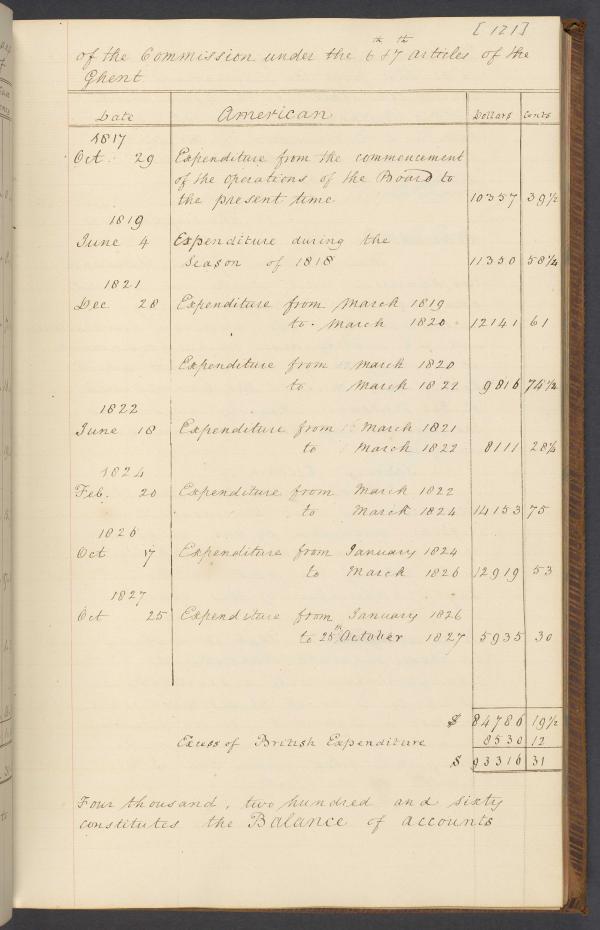 [ 121 ]
of the Commission under the 6th & 7th articles of the
Ghent
Date American Dollars Cents
1817
Oct. 29 Expenditure from the commencement
of the operations of the Board to
the present time 10357 39½
1819
June 4 Expenditure during the
Season of 1818 11350 58¼
1821
Dec 28 Expenditure from March 1819
to March 1820 12141 61
Expenditure from March 1820
to March 1822 9816 74½
1822
June 18 Expenditure from March 1821
to March 1822 8111 28¼
1824
Feb. 20 Expenditure from March 1822
to March 1824 14153 75
1826
Oct 17 Expenditure from January 1824
to March 1826 12919 53
1827
Oct 25 Expenditure from January 1826
to 25th October 1827 5935 30
$ 84786 19½
Excess of British Expenditure 8530 12
$ 93316 31
Four thousand, two hundred and sixty
constitutes the Balance of accounts